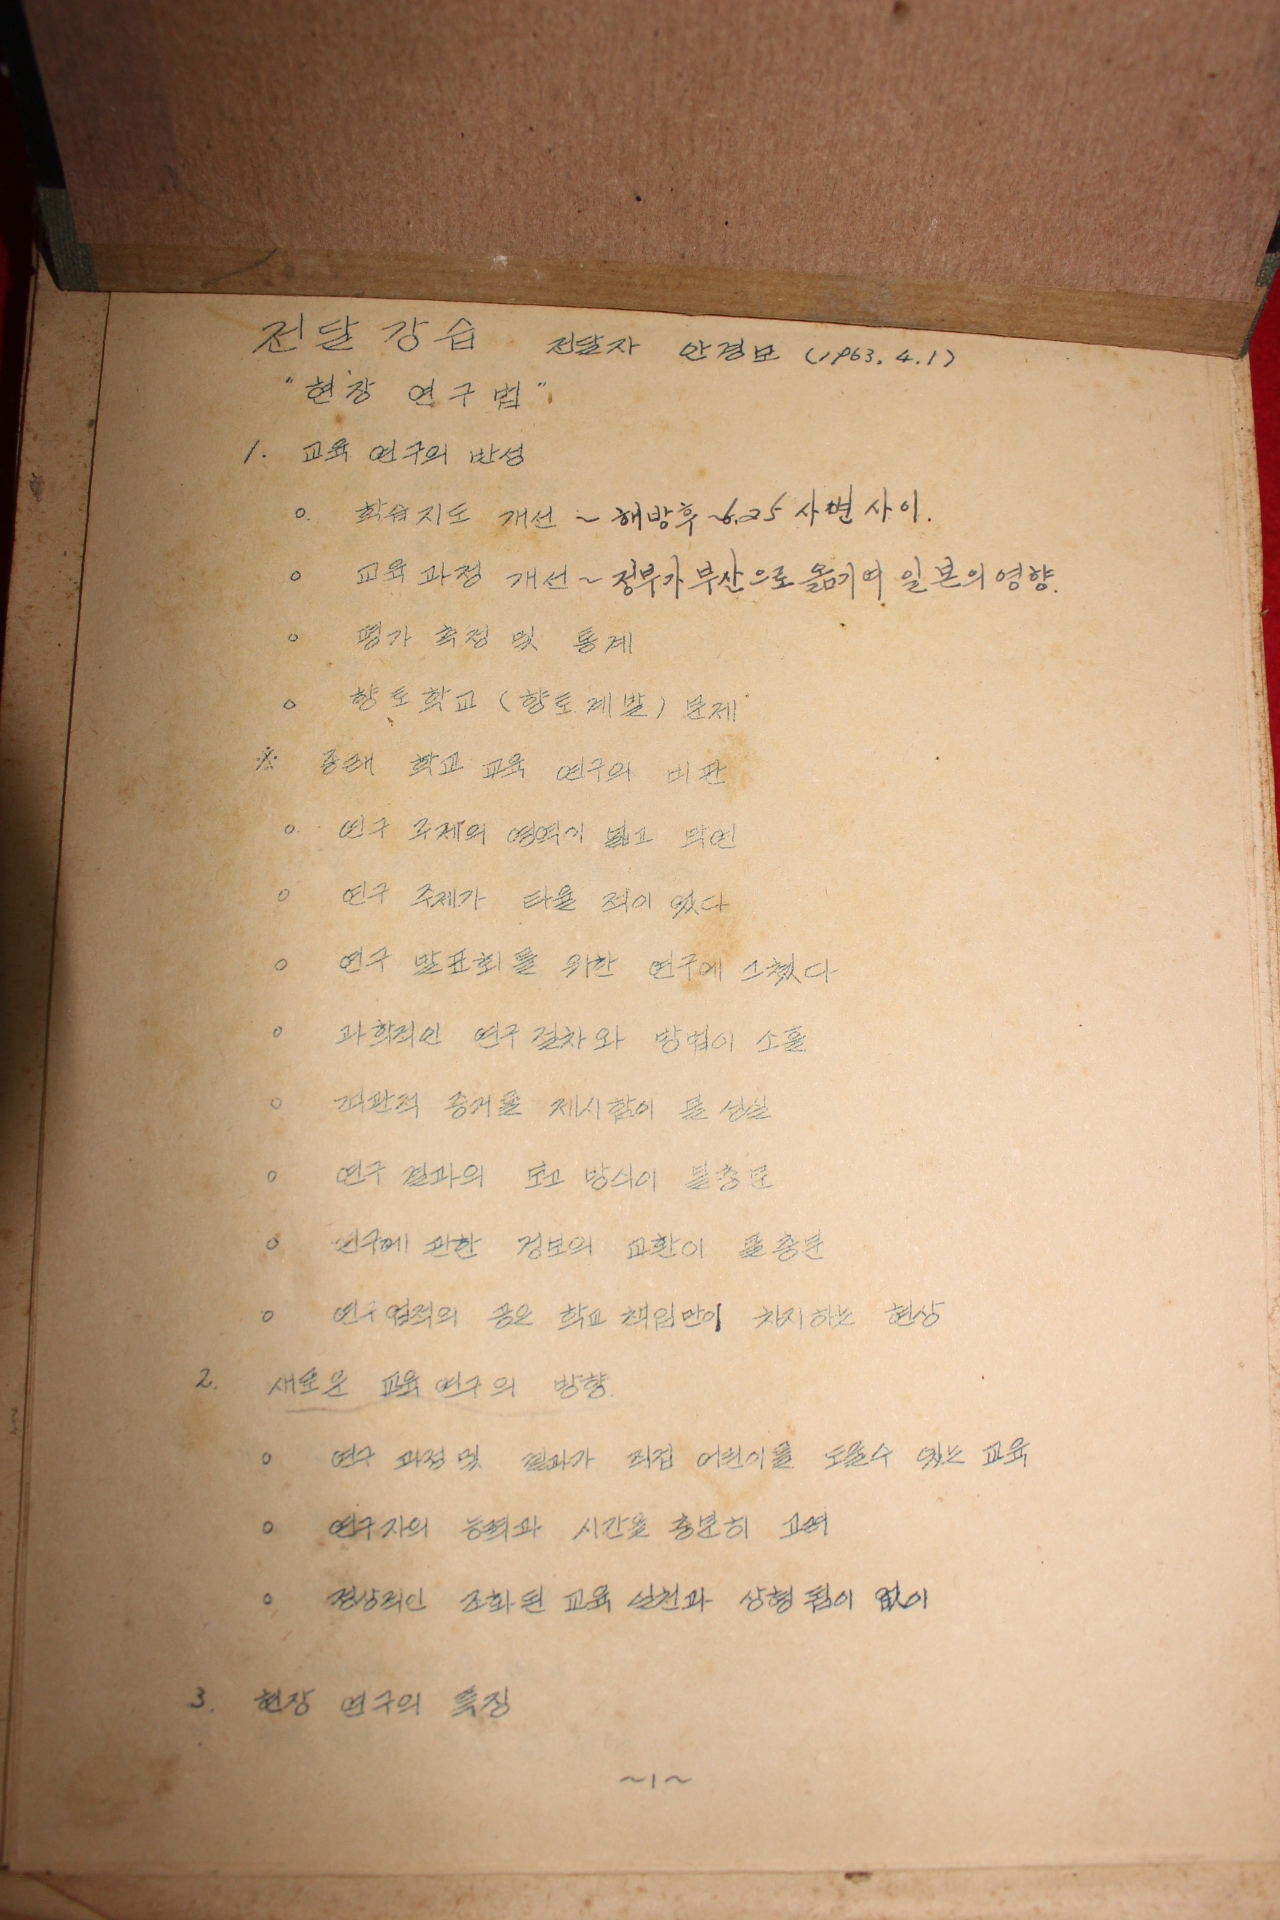 전달강습 전달자 안경모 (1963. 4. 1)
"현장 연구법"
1. 교육 연구의 반성
o. 학습지도 개선 ~ 해방후 ~6.25 사변 사이.
o 교육과정 개선 ~ 정부가 부산으로 옮기여 일본의 영향.
o 평가 측정 및 통계
o 향토학교 (향토계발) 문제
※ 종래 학교 교육 연구의 비판
o. 연구 주제의 영역이 넓고 막연
o 연구 주제가 타율적이 었다
o 연구 발표회를 위한 연구에 그쳤다
o 과학적인 연구 절차와 방법이 소홀
o 객관적 증거를 제시함이 불성실
o 연구 결과의 보고 방식이 불충분
o 연구에 관한 정보의 교환이 불충분
o 연구업적의 공은 학교 책임만이 차지하는 현상
2. 새로운 교육연구의 방향.
o 연구 과정 및 결과가 직접 어린이를 도울수 있는 교육
o 연구자의 능력과 시간을 충분히 고려
o 정상적인 조화된 교육 실천과 상형됨이 없이
3. 현장 연구의 특징
~1~